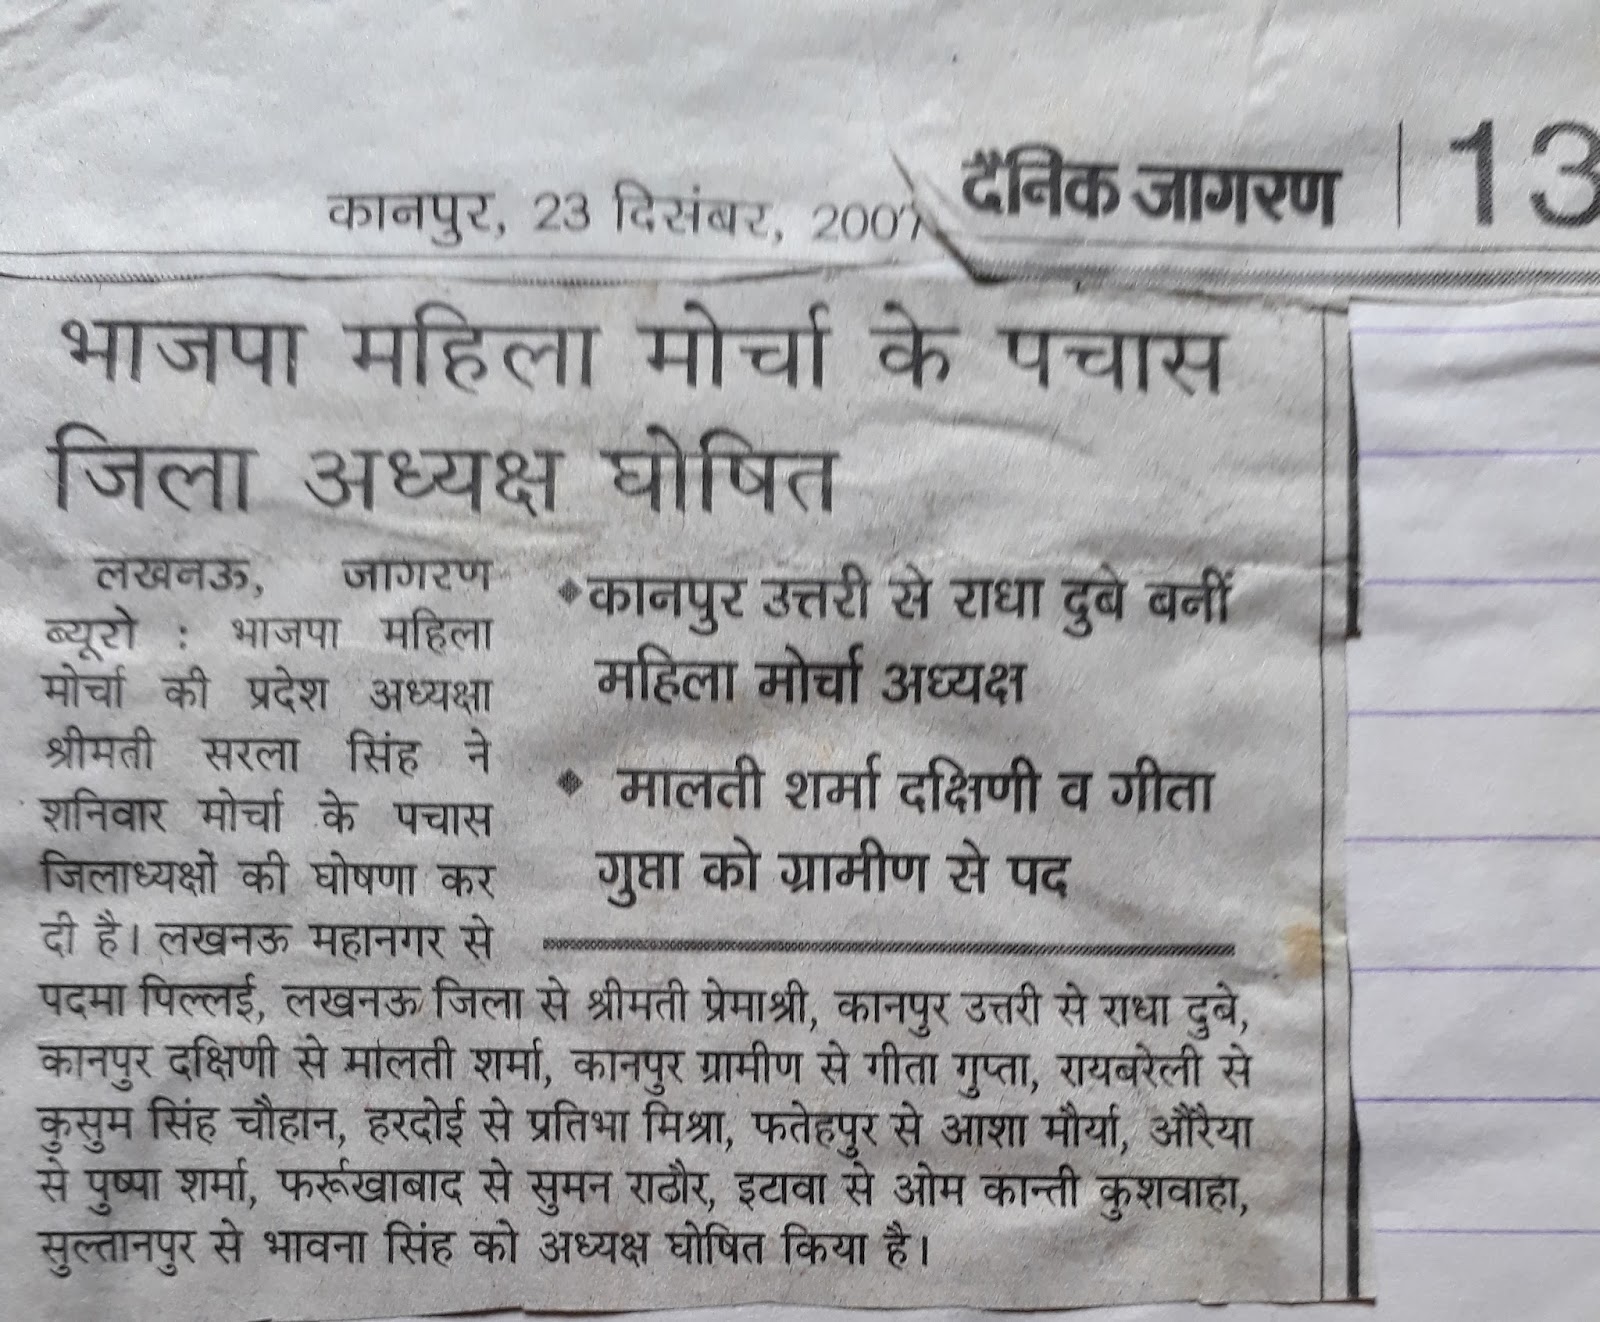 कानपुर, 23 दिसंबर, 2007 दैनिक जागरण | 13
भाजपा महिला मोर्चा के पचास
जिला अध्यक्ष घोषित
लखनऊ, जागरण
ब्यूरो : भाजपा महिला
मोर्चा की प्रदेश अध्यक्षा
श्रीमती सरला सिंह ने
शनिवार मोर्चा के पचास
जिलाध्यक्षों की घोषणा कर
दी है। लखनऊ महानगर से
◆कानपुर उत्तरी से राधा दुबे बनीं
महिला मोर्चा अध्यक्ष
◆ मालती शर्मा दक्षिणी व गीता
गुप्ता को ग्रामीण से पद
पदमा पिल्लई, लखनऊ जिला से श्रीमती प्रेमाश्री, कानपुर उत्तरी से राधा दुबे,
कानपुर दक्षिणी से मालती शर्मा, कानपुर ग्रामीण से गीता गुप्ता, रायबरेली से
कुसुम सिंह चौहान, हरदोई से प्रतिभा मिश्रा, फतेहपुर से आशा मौर्या, औरैया
से पुष्पा शर्मा, फर्रूखाबाद से सुमन राठौर, इटावा से ओम कान्ती कुशवाहा,
सुल्तानपुर से भावना सिंह को अध्यक्ष घोषित किया है।